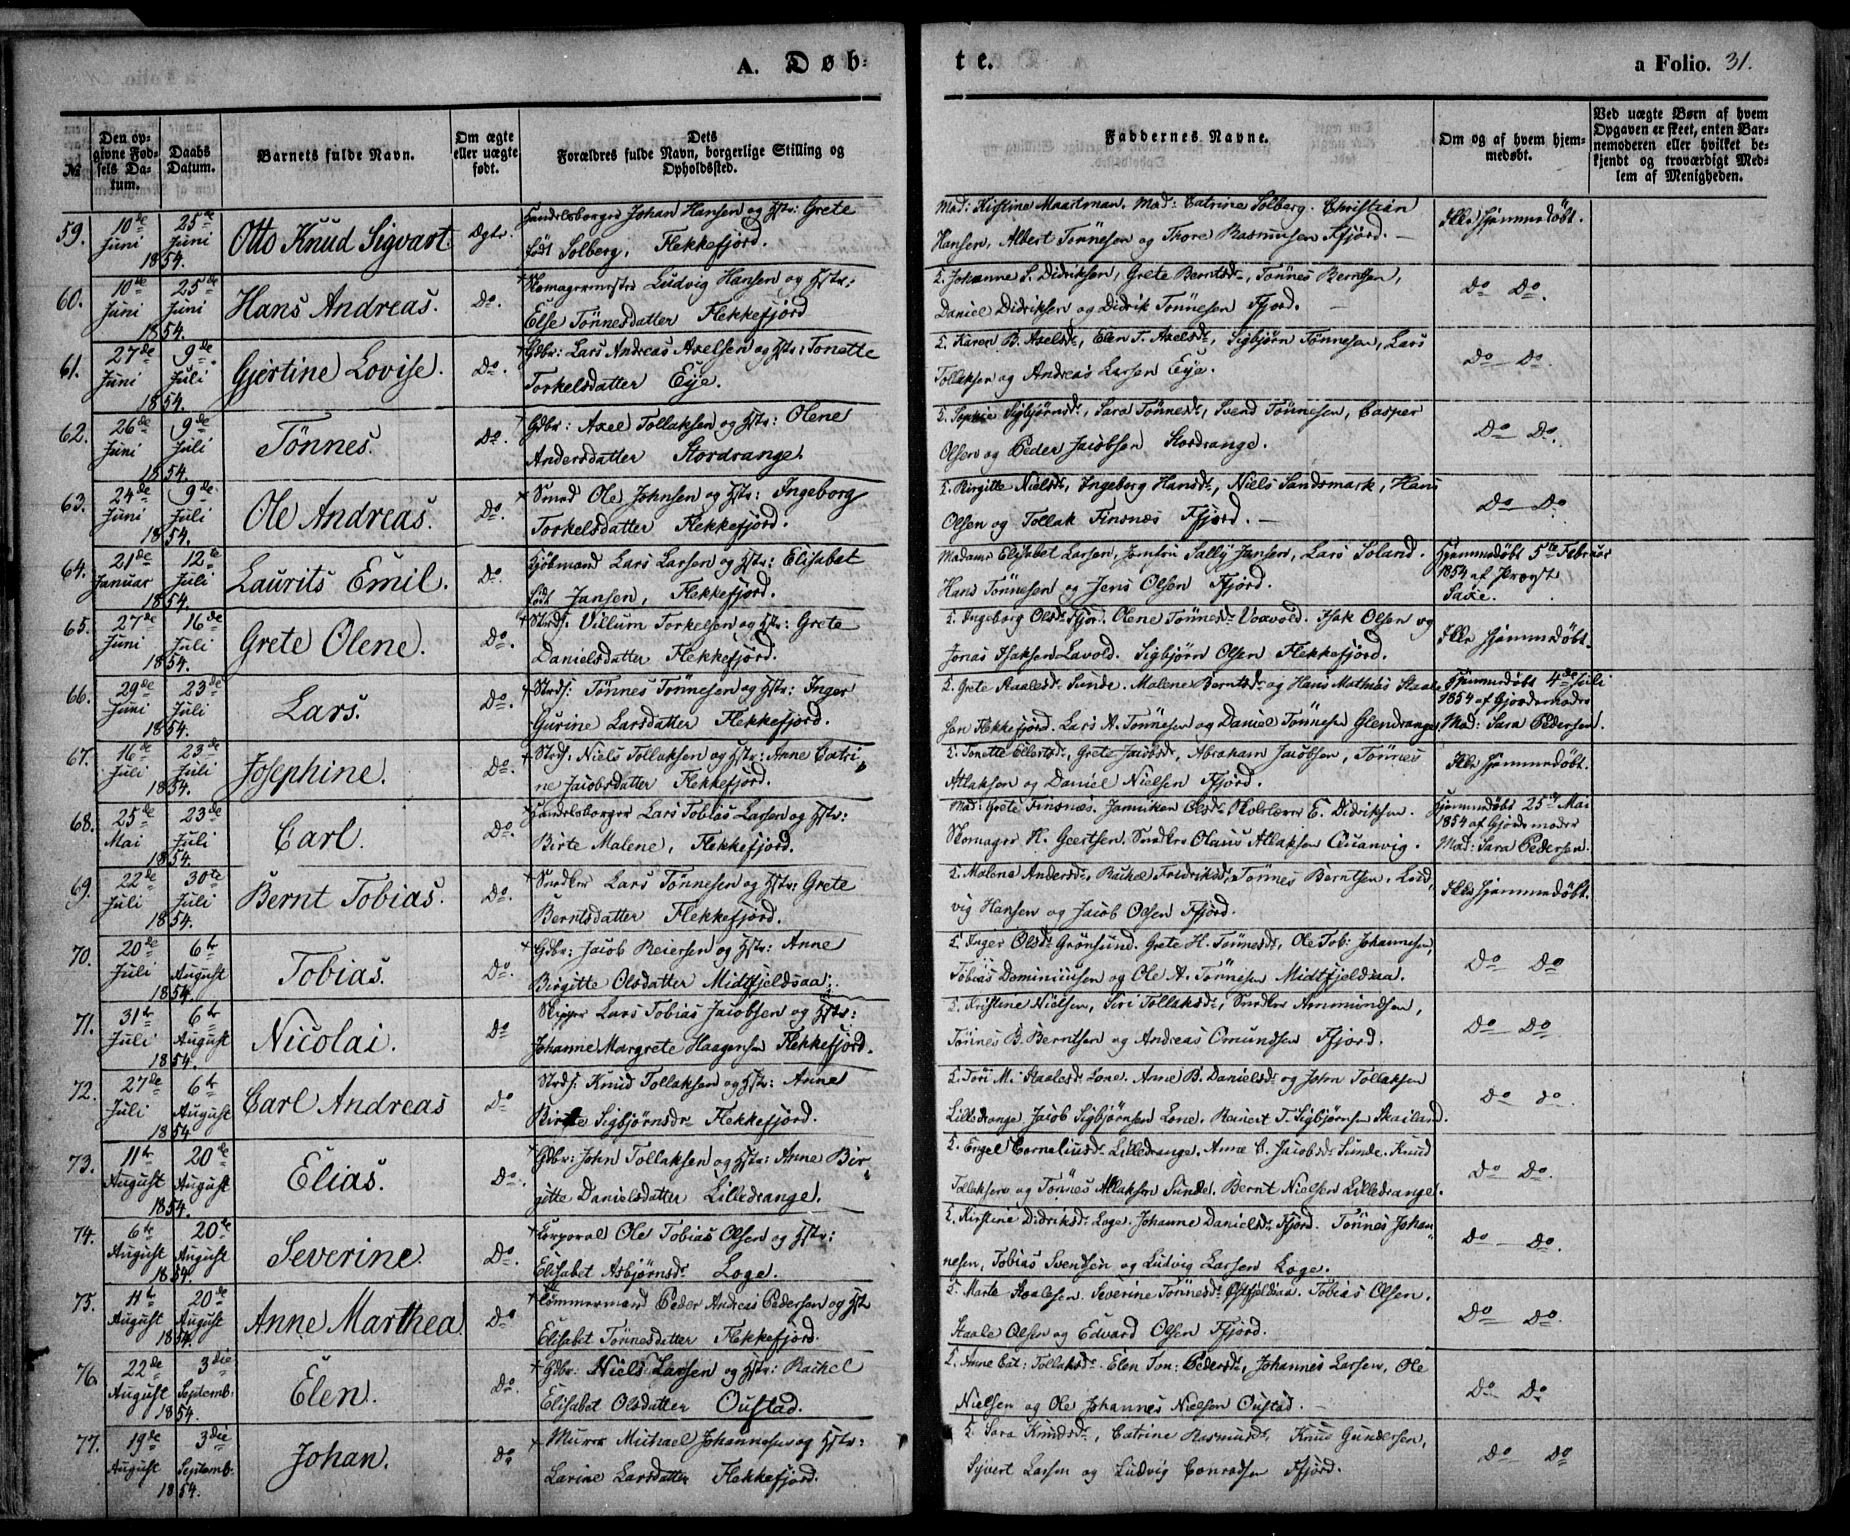 A. Døb-
te.
a Folio. 31.
№
Den op-
givne Fød-
sels Da-
tum.
Daabs
Datum.
Barnets fulde Navn.
Om ægte
eller uægte
født.
Dets
Forældres fulde Navn, borgerlige Stilling og
Opholdssted.
Faddernes Navne.
Om og af hvem hjem-
medøbt.
Ved uægte Børn af hvem
Opgaven er skeet, enten Bar-
nemoderen eller hvilket be-
kjendt og troværdigt Med-
lem af Menigheden.
59. 10de Juni 25de Juni 1854. Otto Knud Sigvart. Ægte.
Handelsborger Johan Hansen og Hstr: Grete
født Solberg, Flekkefjord.
Mad: Kistine Maartman. Mad: Catrine Solberg. Christian
Hansen, Albert Tønnesen og Thore Rasmusen Ffjord.
Ikke hjemmedøbt.
60. 10de Juni 25de Juni 1854. Hans Andreas. Do.
Skomagermester Ludvig Hansen og Hstr:
Else Tønnesdatter Flekkefjord
Johanne S. Didriksen, Grete Berntsdr, Tønnes Berntsen,
Daniel Didriksen og Didrik Tønnesen Ffjord.
Do Do.
61. 27de Juni 9de Juli 1854. Gjertine Lovise. Do.
Gdbr: Lars Andreas Axelsen og Hstr: Tonette
Torkelsdatter Eye.
Karen B. Axelsdr, Elen T. Axelsdr, Sigbjørn Tønnesen, Lars
Tollaksen og Andreas Larsen Eye.
Do Do.
62. 26de Juni 9de Juli 1854. Tønnes. Do.
Gdbr: Axel Tollaksen og Hstr: Olene
Andersdatter Stordrange.
Sophie Sigbjørnsdr, Sara Tønnesdr, Svend Tønnesen, Casper
Olsen og Peder Jacobsen Stordrange.
Do Do.
63. 24de Juni 9de Juli 1854. Ole Andreas. Do.
Smed Ole Johnsen og Hstr: Ingeborg
Torkelsdatter Flekkefjord.
Birgitte Nielsdr, Ingeborg Hansdr, Niels Sandsmark, Hans
Olsen og Tollak Finsnes Ffjord.
Do Do
64. 21de Januar 12te Juli 1854. Laurits Emil. Do.
Kjøbmand Lars Larsen og Hstr: Elisabet
født Jansen, Flekkefjord.
Madame Elisabet Larsen, Jomfru Sally Jansen, Lars Soland.
Hans Tønnesen og Jens Olsen Ffjord.
Hjemmedøbt 5te Februar
1854 af Provst
Saxe.
65. 27de Juni 16de Juli 1854. Grete Olene. Do.
Strds: Villum Torkelsen og Hstr: Grete
Danielsdatter Flekkefjord.
Ingeborg Olsdr Ffjord. Olene Tønnesdr Voxvold. Isak Olsen og
Jonas Isaksen Lavold. Sigbjørn Olsen Flekkefjord.
Ikke hjemmedøbt.
66. 29de Juni 23de Juli 1854. Lars. Do.
Strds: Tønnes Tønnesen og Hstr: Inger
Gurine Larsdatter Flekkefjord.
Grete Staalesdr Sunde. Malene Berntsdr og Hans Mathias Staale
sen Flekkefjord. Lars A. Tønnesen og Daniel Tønnesen Glendrange.
Hjemmedøbt 4de Juli
1854 af Gjordemoder
Mad: Sara Pedersen.
67. 16de Juli 23de Juli 1854. Josephine. Do.
Strds: Niels Tollaksen og Hstr: Anne Catri
ne Jacobsdatter Flekkefjord.
Tonette Ellertsdr, Grete Jacobsdr, Abraham Jacobsen, Tønnes
Atlaksen og Daniel Nielsen Ffjord.
Ikke hjemmedøbt.
68. 25de Mai 23de Juli 1854. Carl. Do.
Handelsborger Lars Tobias Larsen og Hstr:
Birte Malene, Flekkefjord.
Mad: Grete Finsnæs. Janniken Olsdr. E. Didriksen.
Skomager H. Geertsen. Snedker Olaus Atlaksen Quanvig.
Hjemmedøbt 25de Mai
1854 af Gjordemoder
Mad: Sara Pedersen.
69. 22de Juli 30te Juli 1854. Bernt Tobias. Do.
Snedker Lars Tønnesen og Hstr: Grete
Berntsdatter Flekkefjord.
Malene Andersdr, Rachel Fredriksdr, Tønnes Berntsen, Lud
vig Hansen og Jacob Olsen Ffjord.
Ikke hjemmedøbt.
70. 20de Juli 6te August 1854. Tobias. Do.
Gdbr: Jacob Reiersen og Hstr: Anne
Birgitte Olsdatter Midtfjeldsaa.
Inger Olsdr Grønsund. Grete H. Tønnesdr, Ole Tob: Johannesen,
Tobias Dominicusen og Ole A. Tønnesen Midtfjeldsaa.
Do Do
71. 31te Juli 6te August 1854. Nicolai. Do
Skipper Lars Tobias Jacobsen og Hstr:
Johanne Margrete Haagensen Flekkefjord.
Kristine Nielsen, Siri Tollaksdr, Snedker Ammundsen,
Tønnes B. Berntsen og Andreas Omundsen Ffjord.
Do Do.
72. 27de Juli 6te August 1854 Carl Andreas Do
Strds: Knud Tollaksen og Hstr: Anne
Birte Sigbjørnsdr Flekkefjord.
Tori M. Staalesdr Lone. Anne B. Danielsdr og John Tollaksen
Lilledrange. Jacob Sigbjørnsen Lone. Reinert T. Sigbjørnsen Skailand.
Do do.
73. 11te August 20de August 1854. Elias. Do.
Gdbr: John Tollaksen og Hstr: Anne Bir
gitte Danielsdatter Lilledrange.
Engel Corneliusdr Lilledrange. Anne C. Jacobsdr Sunde. Knud
Tollaksen og Tønnes Atlaksen Sunde. Bernt Nielsen Lilledrange.
Do Do.
74. 6te August 20de August 1854. Severine. Do.
Corporal Ole Tobias Olsen og Hstr:
Elisabet Asbjørnsdr Loge.
Kirstine Didriksdr Loge. Johanne Danielsdr Ffjord. Tønnes Johan
nesen, Tobias Svendsen og Ludvig Larsen Loge.
Do Do.
75. 11te August 20de August 1854. Anne Marthea. Do
Tømmermand Peder Andreas Pedersen og Hstr
Elisabet Tønnesdatter Flekkefjord.
Marte Staalesen. Severine Tønnesdr Østfjeldsaa. Tobias Olsen.
Staale Olsen og Edvard Olsen Ffjord.
Do Do.
76. 22de August 3die Septemb. 1854. Elen. Do.
Gdbr. Niels Larsen og Hstr: Rachel
Elisabet Olsdatter Oustad.
Anne Cat: Tollaksdr. Elen Ton: Pedersdr, Johannes Larsen, Ole
Nielsen og Ole Johannes Nielsen Oustad.
Do Do
77. 19de August 3die Septemb. 1854. Johan. Do
Murer Michael Johannesen og Hstr:
Larine Larsdatter Flekkefjord.
Sara Knudsdr, Catrine Rasmusdr, Knud Gundersen,
Syvert Larsen og Ludvig Conradsen Ffjord.
Do Do